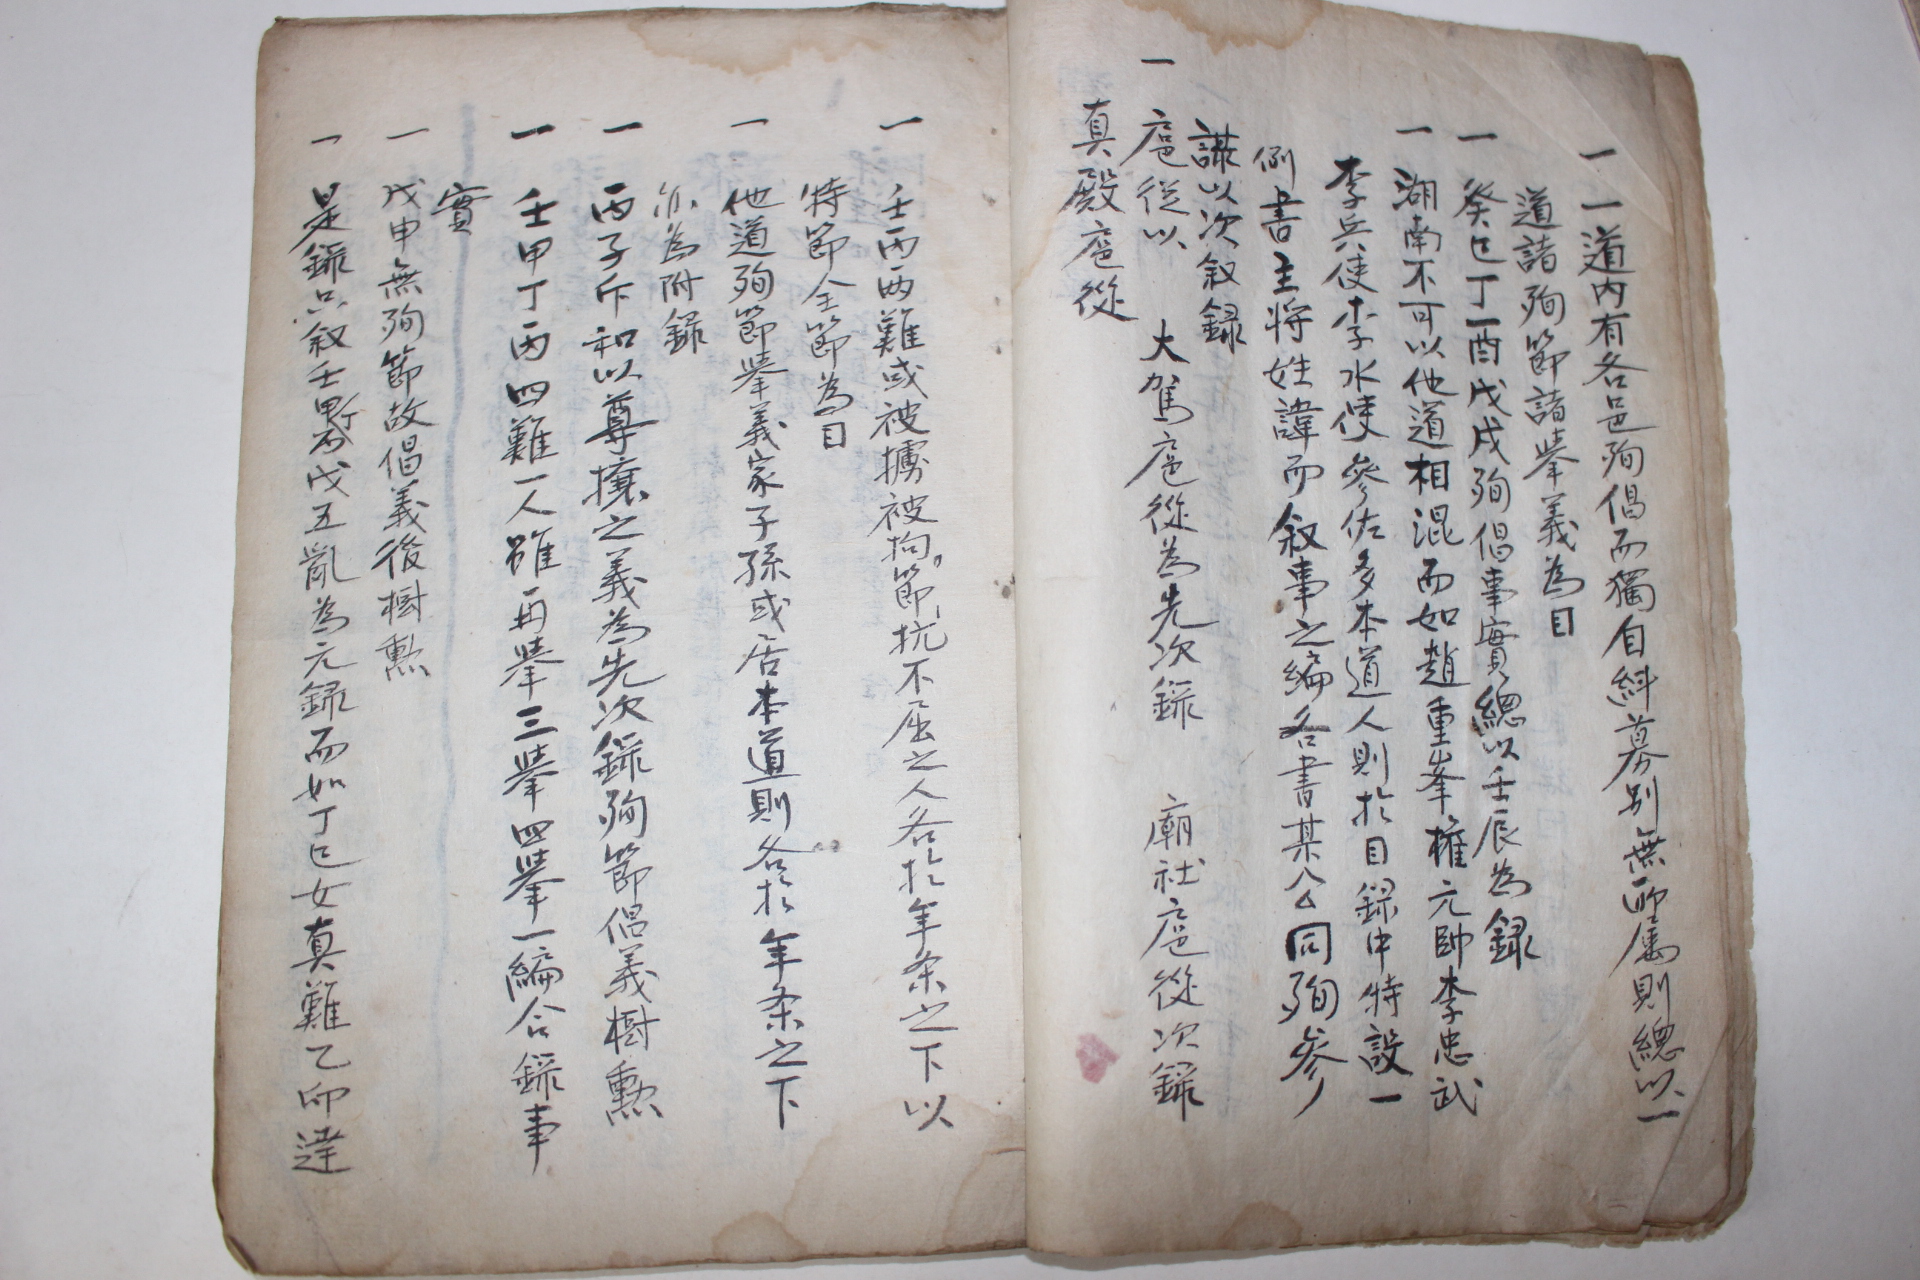 一 一道內有各邑殉倡而獨自糾募別無所屬則總以一
道諸殉節諸擧義為目
一 癸巳丁酉戊戌殉倡事實總以壬辰為錄
一 湖南不可以他道相混而如趙重峯權元帥李忠武
李兵使李水使參佐多本道人則於目錄中特設一
例書主將姓諱而敘事之編各書某公同殉參
謀以次敘錄
一 扈從以 大駕扈從為先次錄 廟社扈從次錄
真殿扈從
一 壬丙兩難或被擄被拘節抗不屈之人各於年条之下以
特節全節為目
一 他道殉節擧義家子孫或居本道則各於年条之下
亦為附錄
一 丙子斥和以尊攘之義為先次錄殉節倡義樹勲
一 壬甲丁丙四難一人雖再擧三擧四擧一編合錄事
實
一 戊申無殉節故倡義後樹勲
一 是錄只敘壬丙戊五亂為元錄而如丁巳女真難乙卯達